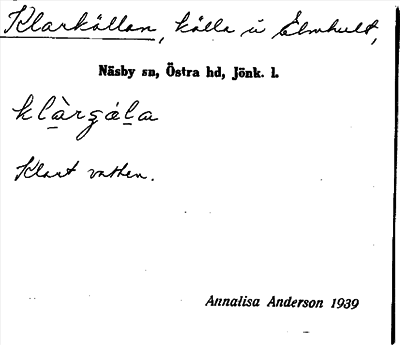 Klarkällan, källa i Elmhult,
Näsby sn, Östra hd, Jönk. l.
klàrʒála
Klart vatten.
Annalisa Anderson 1939